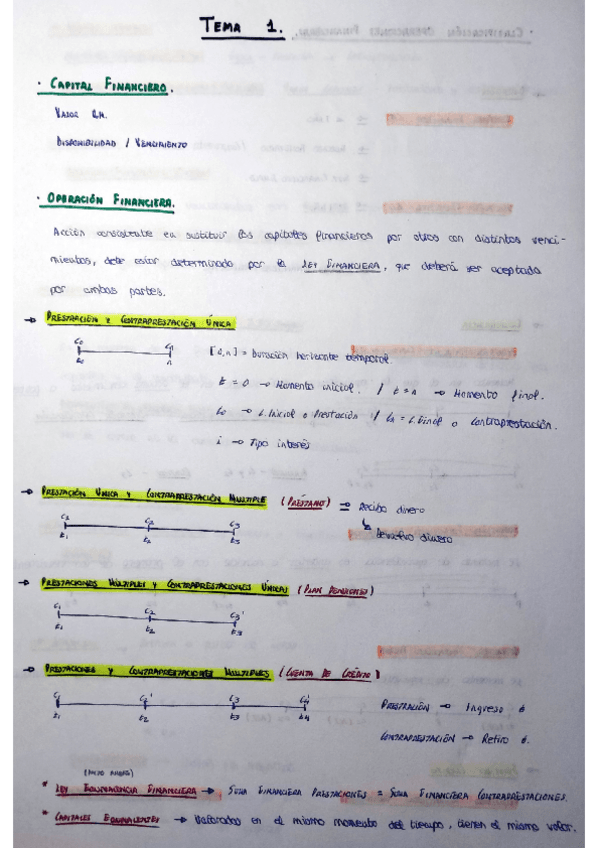 TEMA 1.
· CAPITAL FINANCIERO.
VALOR
DISPONIBILIDAD / VENCIMIENTO
· OPERACIÓN FINANCIERA.
Acción consistente en sustituir los capitales financieros por otros con distintos venci-
mientos, debe estar determinado por la LEY FINANCIERA, que deberá ser aceptada
por ambas partes.
→ PRESTACIÓN Y CONTRAPRESTACIÓN ÚNICA
C₀ Cn
t₀ n
[0,n] = Duración horizonte temporal.
t = 0 → Momento inicial. / t = n → Momento final.
C. Inicial o Prestación // Cn = C. Final o Contraprestación.
i → Tipo interés
→ PRESTACIÓN ÚNICA Y CONTRAPRESTACIÓN MÚLTIPLE (PRÉSTAMO) → Recibo dinero
↳ Devuelvo dinero
C₂ C₃
t₁ t₂ t₃
→ PRESTACIONES MÚLTIPLES Y CONTRAPRESTACIONES ÚNICAS (PLAN PENSIONES)
C₁ C₂ C₃'
t₁ t₂ t₃
→ PRESTACIONES Y CONTRAPRESTACIONES MÚLTIPLES (CUENTA DE CRÉDITO)
C₁ C₂' C₃ C₄'
t₁ t₂ t₃ t₄
PRESTACIÓN → Ingreso €
CONTRAPRESTACIÓN → Retiro €.
* LEY EQUIVALENCIA FINANCIERA → SUMA FINANCIERA PRESTACIONES = SUMA FINANCIERA CONTRAPRESTACIONES.
* CAPITALES EQUIVALENTES → Valorados en el mismo momento del tiempo, tienen el mismo valor.